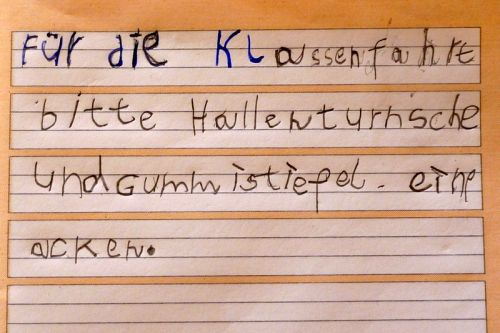 Für die Klassenfahrt
bitte Hallenturnsche
und Gummistiefel. eine
acken.